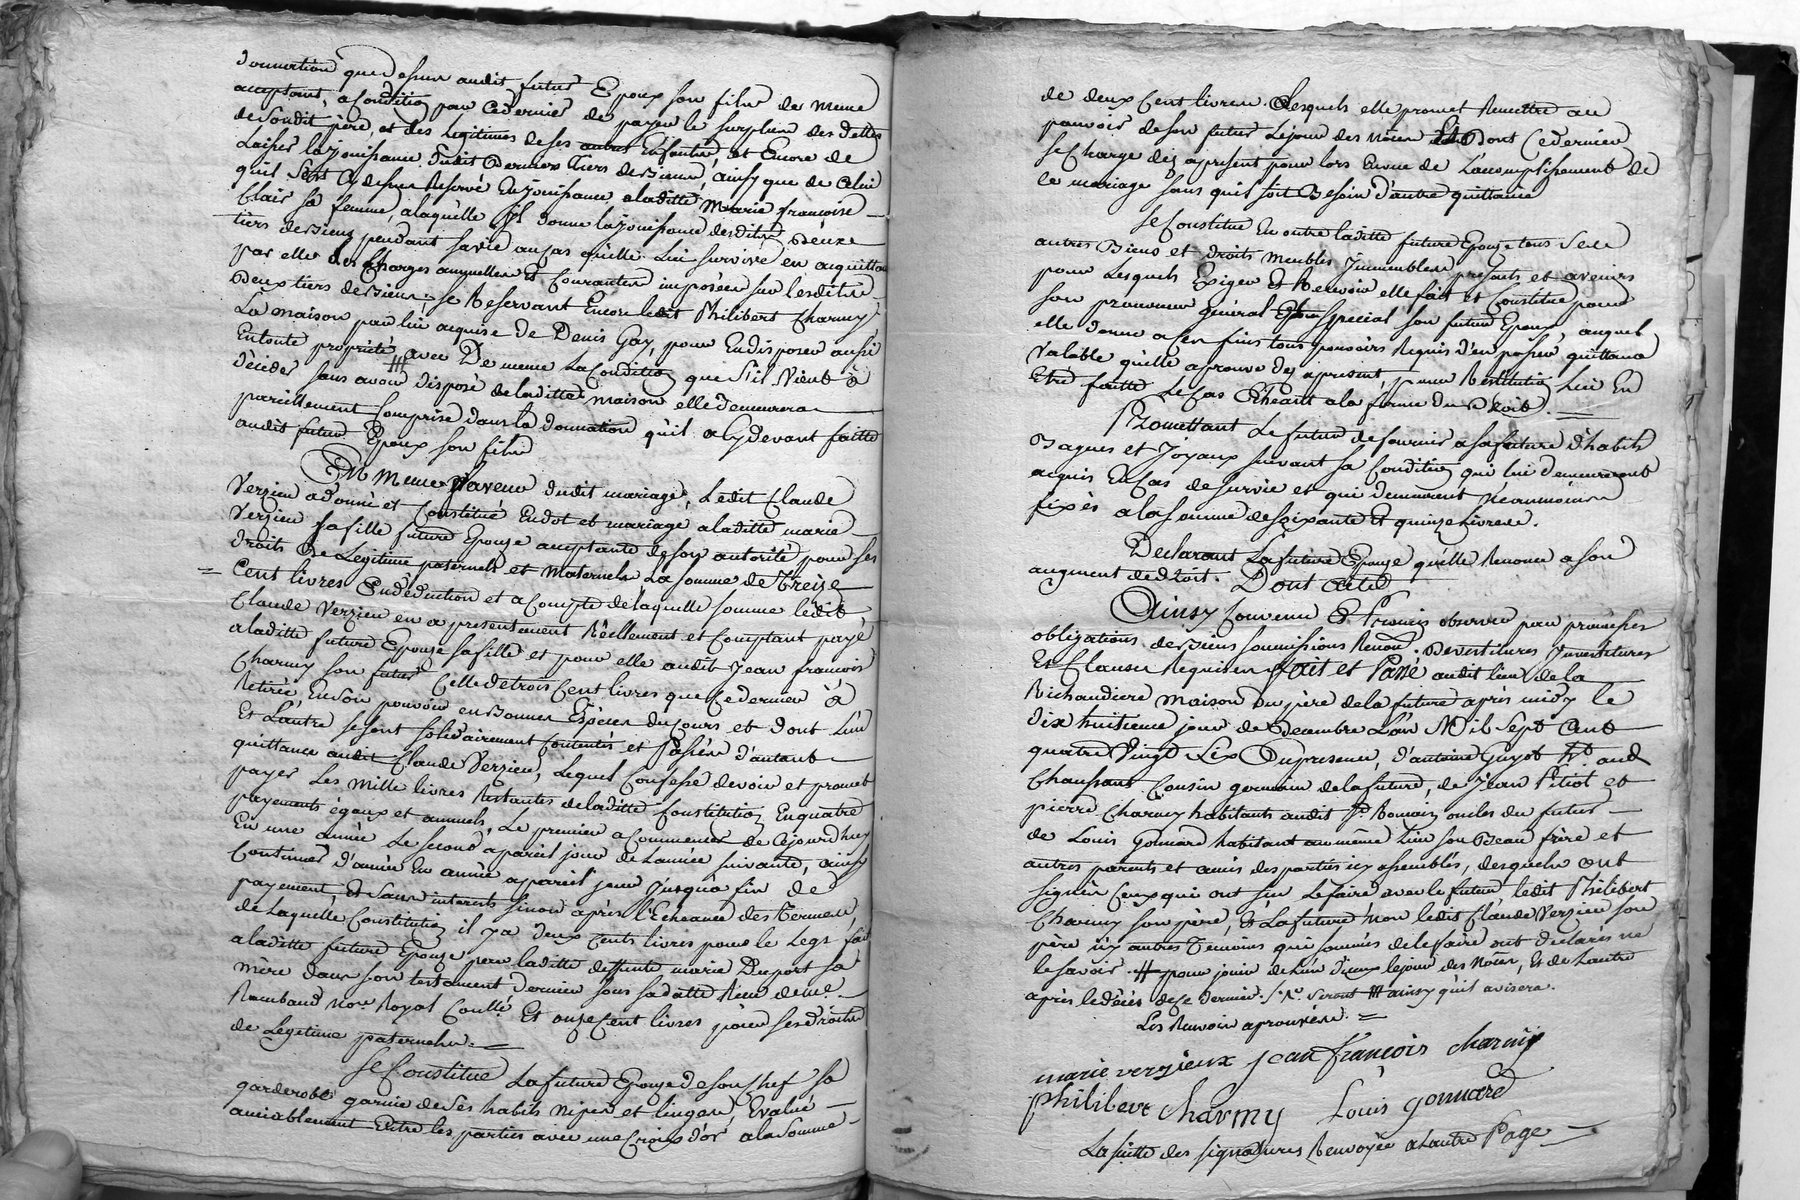 donnation que dessus audit futur Epoux son fils de meme
acceptant, a Condition par Cedernier de payer le surplus des dettes
desondit père, et des Legitimes de ses autres Enfants, et Encore de
Laisser la jouissance dudit Dernier tiers de Bien, ainsy que de Celui
quil s'est Cy dessus Reservé En jouissance aladitte Marie françoise
Clair sa femme, alaquelle il donne la jouissance desdits Deux
tiers de Biens pendant sa vie au cas quelle Lui survive en acquittant
par elle les Charges annuelles et Courantes imposées sur lesdits
Deux tiers de Biens. se Reservant Encore ledit Philibert Charmy
La maison par lui acquise de Denis Gay, pour Endisposer aussi
Entoute propriété avec De meme La Condition que S'il Vient à
décéder sans avoir disposé deladitte maison elle demeurera
pareillement Comprise dans la donnation quil a Cy devant faitte
audit futur Epoux son fils
En Meme faveur dudit mariage, Ledit Claude
Verzieu a donné et Constitué Endot et mariage aladitte marie
Verzieu sa fille future Epouze acceptante de son autorité pour ses
droits de Legitime paternels et Maternels La somme de Treize
= Cent livres Endéduction et acompte delaquelle somme ledit
Claude Verzieu en a presentement Réellement et Comptant payé
aladitte future Epouze sa fille et pour elle audit Jean françois
Charmy son futur Celle de trois Cent livres que Cedernier à
Retirée Enson pouvoir en Bonnes Espèces du Cours et dont L'un
Et L'autre se sont solidairement Contentés et Passées d'autant
quittance audit Claude Verzieu, Lequel Confesse devoir et promet
payer Les Mille livres Restantes deladitte Constitution Enquatre
payements égaux et annuels, Le premier a Commencer de Cejourdhuy
En une année Le second apareil jour de Lannée suivante, ainsy
Continuer d'année En année apareil jour jusqua fin de
payement, et sans interests sinon après l'Echeance des Termes,
de Laquelle Constitution il y a deux Cents livres pour le Legs fait
aladitte future Epouze par laditte deffunte marie Duport sa
mère dans son testament Dernier sous sa datte Reçu de me.
Rambaud Nore. Royal Et onze Cent livres pour ses droits
de Legitime paternels. =
Se Constitue La future Epouze de son Chef sa
garderobe garnie de ses habits Nipes et linges, Evalué
amiablement Entre les parties avec une Croix d'or a la Somme
de deux Cent livres. Lesquels elle promet Remettre au
pouvoir de son futur Le jour des Noces Et Dont Cedernier
se Charge dez apresent pour lors Envue de L'accomplissement de
ce mariage sans quil soit Besoin d'autre quittance
se Constitue En outre laditte future Epouze tous Ses
autres Biens et droits Meubles Immeubles presents et avenirs
pour Lesquels Exiger et Recevoir elle fait et Constitue pour
son procureur général Et special son futur Epoux, auquel
elle donne a ces fins tous pouvoirs Requis d'en passer quittance
Valable qu'elle aprouve dez apresent, pour Restitution Lui En
Etre faitte Le Cas Echeant a la forme du Droit. =
Promettant Le futur de fournir a sa future d'habits
Bagues et Joyaux suivant sa Condition qui lui demeureront
acquis En Cas de survie et qui demeurent Neanmoins
fixés a la somme de soixante Et quinze Livres.
Declarant La future Epouze quelle Renonce a son
augment de Droit. Dont acte
Ainsy Convenu Et Promis observer par promesses
obligations de Biens soumissions Renon. Devestitures Investitures
Et Clauses Requises fait et Passé audit lieu de la
Richaudiere maison du père de la future après midy le
dix huitieme jour de Decembre L'an Mil Sept Cent
quatre Vingt Dix En presence, d'antoine Guyot
Chaussant Cousin germain de la future, de Jean Pitiot et
pierre Charmy habitants audit St. Romain oncles du futur
de Louis Gonnard habitant au même lieu son Beau frère et
autres parents et amis des parties icy assemblés, desquels ont
signés Ceux qui ont scu Le faire avec le futur ledit Philibert
Charmy son père, Et La future Non ledit Claude Verzieu son
père N'y autres Temoins qui sommés de le faire ont declarés ne
le savoir. # pour jouir de L'un d'iceux le jour des Noces, Et de Lautre
après le décès de ce dernier. ainsy quil avisera.
Les Renvois aprouvés. =
marie verzieux jean françois charmy
philibert Charmy Louis gonnard
La suitte des signatures Renvoyée a Lautre Page